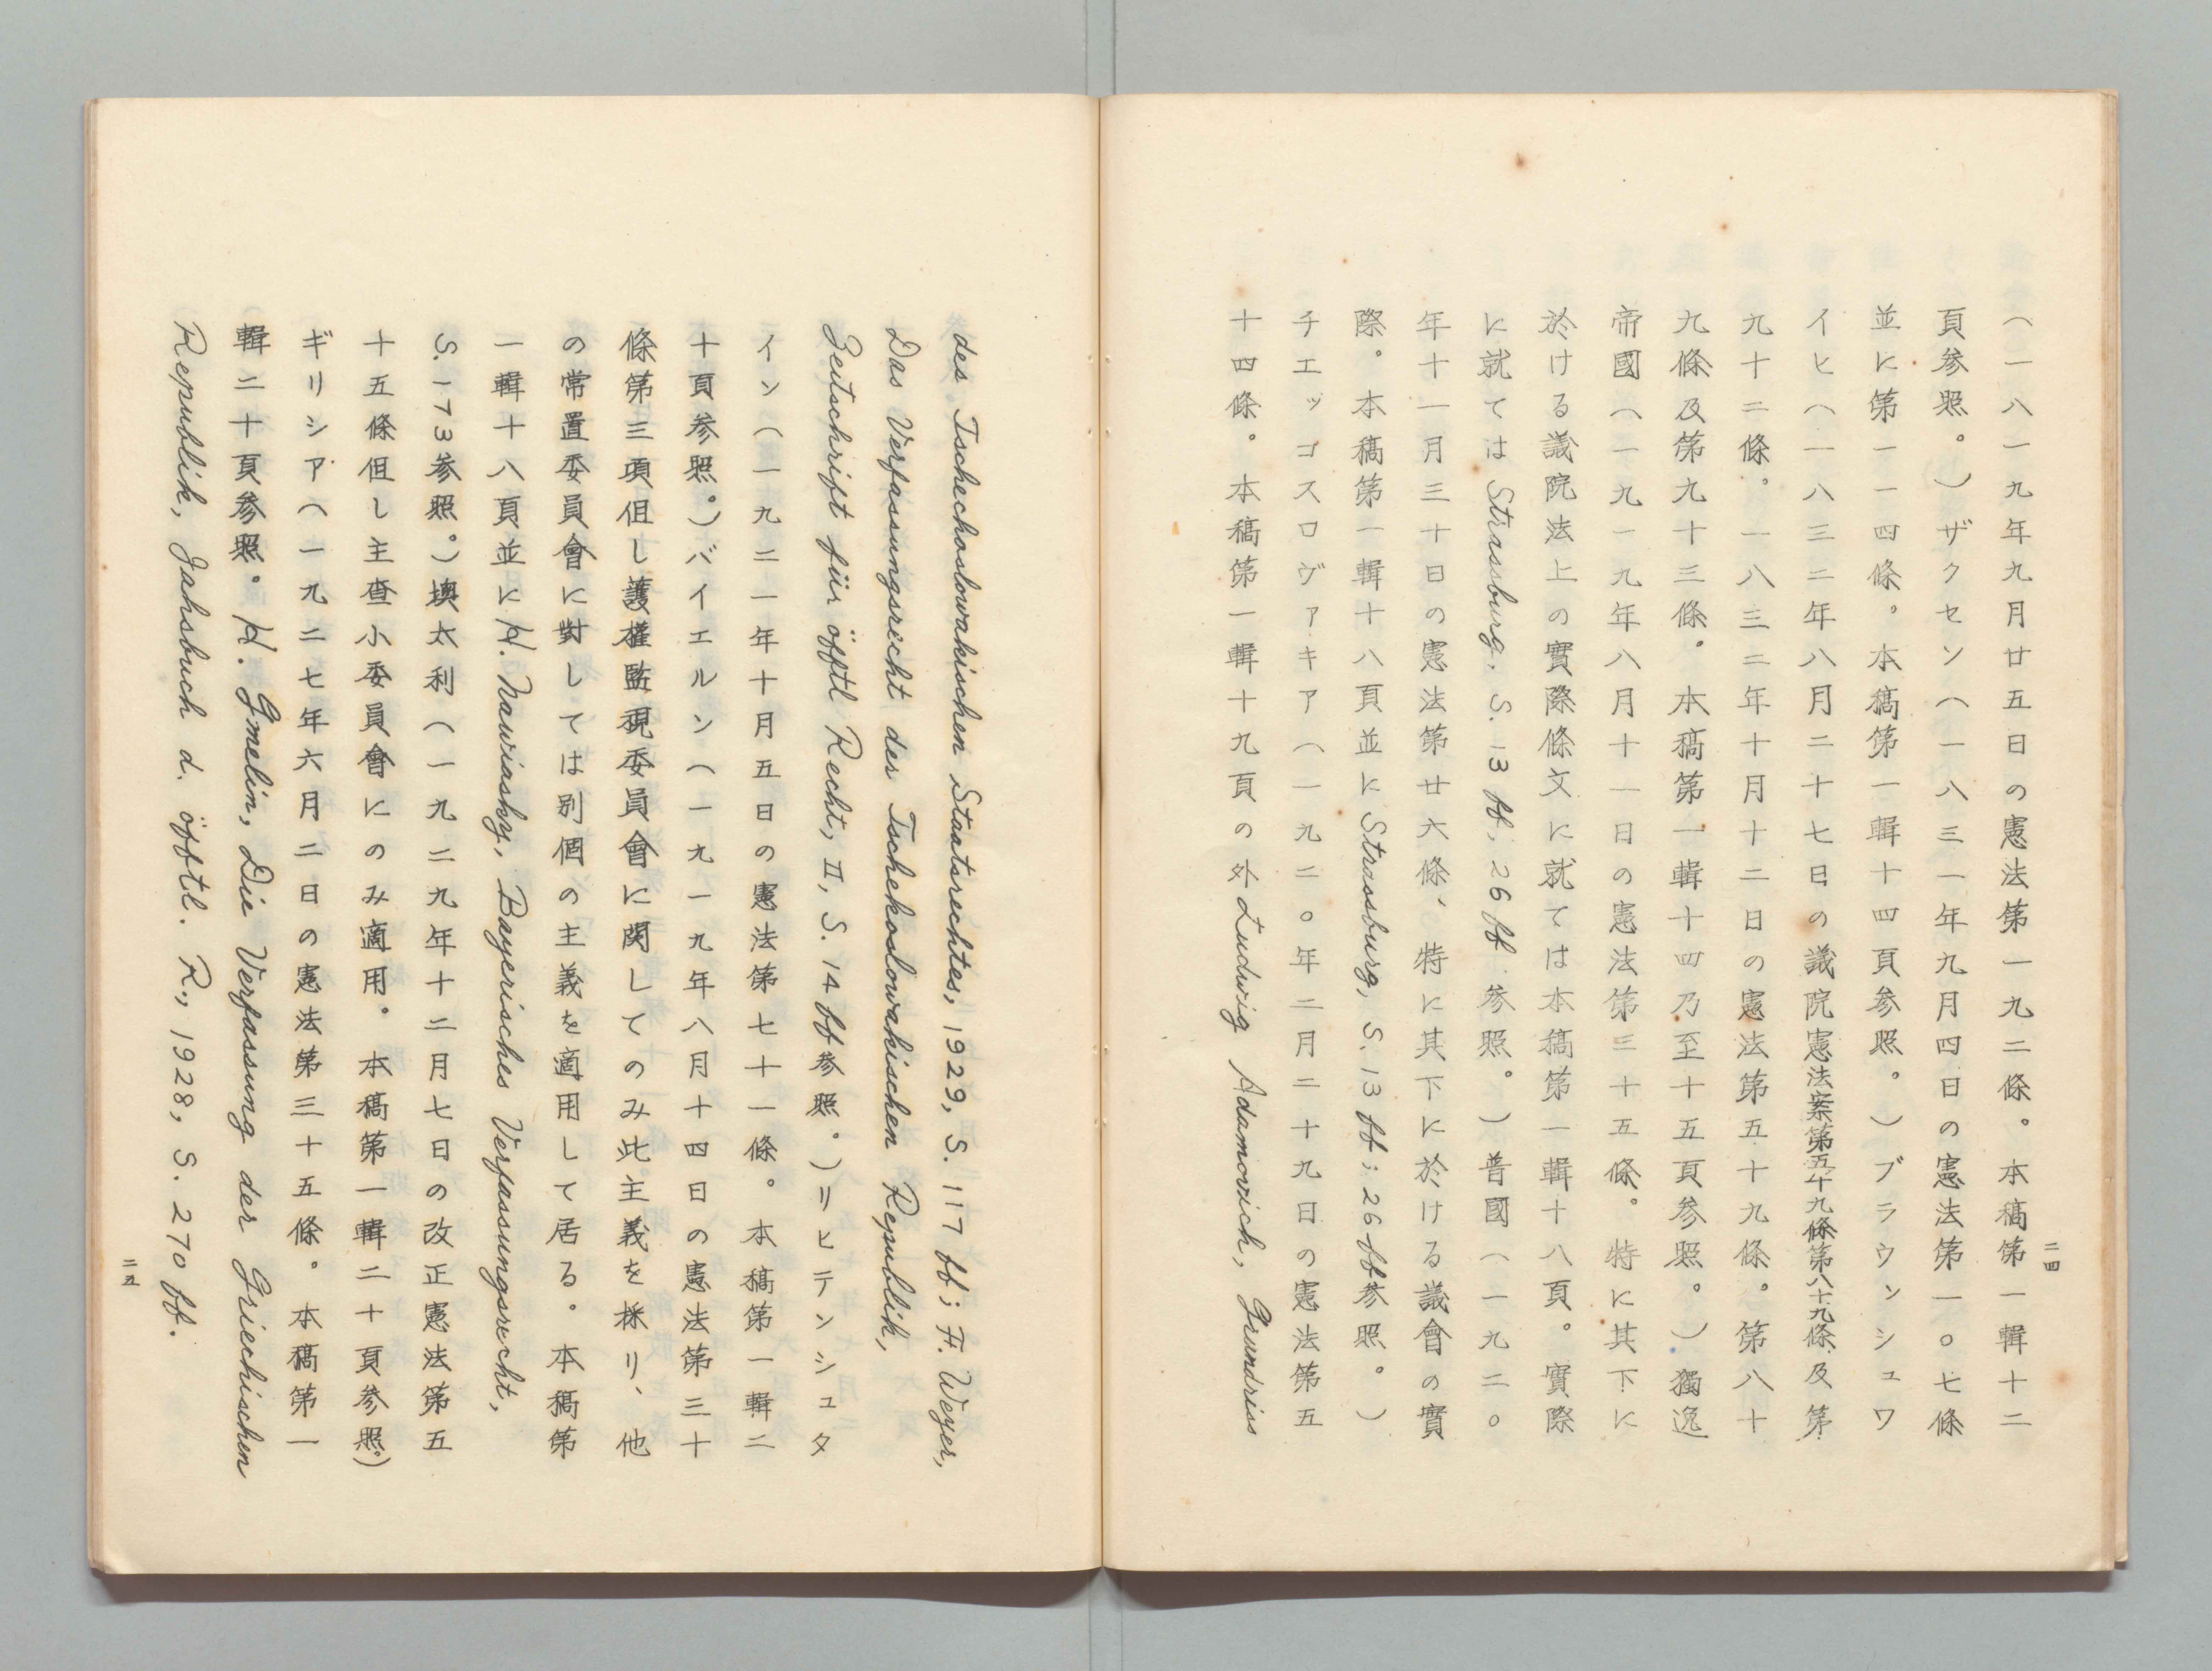 二四
（一八一九年九月廿五日の憲法第一九二條。本稿第一輯十二
頁参照。）ザクセン（一八三一年九月四日の憲法第一〇七條
並に第一一四條。本稿第一輯十四頁参照。）ブラウンシュワ
イヒ（一八三二年八月二十七日の議院憲法案第五十九條第八十九條及第
九十二條。一八三二年十月十二日の憲法第五十九條。第八十
九條及第九十三條。本稿第一輯十四乃至十五頁参照。）獨逸
帝國（一九一九年八月十一日の憲法第三十五條。特に其下に
於ける議院法上の實際條文に就ては本稿第一輯十八頁。實際
に就ては Strassburg, S. 13 ff, 26 ff 参照。）普國（一九二〇
年十一月三十日の憲法第廿六條、特に其下に於ける議會の實
際。本稿第一輯十八頁並に Strassburg, S. 13 ff; 26 ff 参照。）
チエッゴスロヴァキア（一九二〇年二月二十九日の憲法第五
十四條。本稿第一輯十九頁の外 Ludwig Adamovich, Grundriss
des Tschechoslowakischen Staatsrechtes, 1929, S. 117 ff; F. Weyer,
Das Verfassungsrecht der Tschekoslowakischen Republik,
Zeitschrift für öfftl Recht, II, S. 14 ff 参照。）リヒテンシュタ
イン（一九二一年十月五日の憲法第七十一條。本稿第一輯二
十頁参照。）バイエルン（一九一九年八月十四日の憲法第三十
條第三項但し護權監視委員會に関してのみ此主義を採リ、他
の常置委員會に對しては別個の主義を適用して居る。本稿第
一輯十八頁並に H. Nawiasky, Bayerisches Verfassungsrecht,
S. 173 参照。）墺太利（一九二九年十二月七日の改正憲法第五
十五條但し主査小委員會にのみ適用。本稿第一輯二十頁参照。）
ギリシア（一九二七年六月二日の憲法第三十五條。本稿第一
輯二十頁参照。H. Gmelin, Die Verfassung der Griechischen
Republik, Jahsbuch d. öfftl. R., 1928, S. 270 ff.
二五